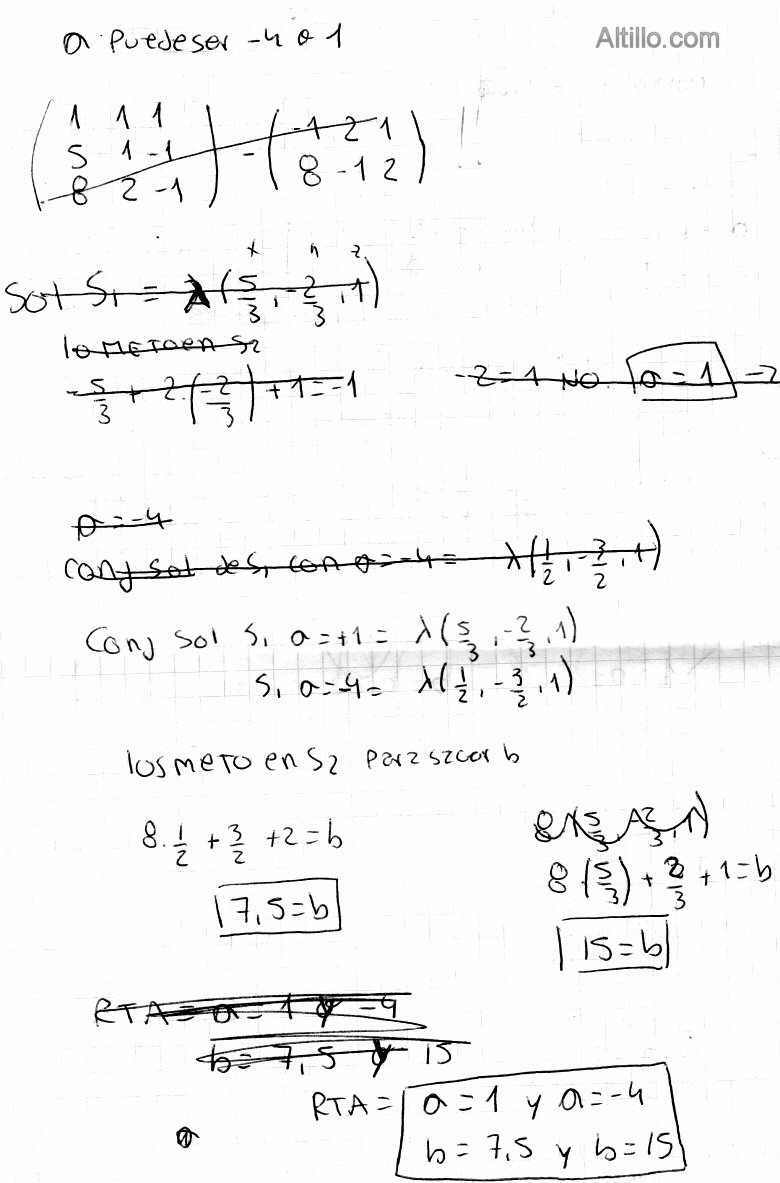 a puede ser -4 o 1
Altillo.com
1 1 1
5 1 -1
8 2 -1
-
-1 2 1
8 -1 2
!!
x y z
Sol S1 = λ(5/3, -2/3, 1)
lo meto en S2
-5/3 + 2.(-2/3) + 1 = -1
-2=1 NO a=1 -2
a=-4
Conj sol de S1 con a=-4 = λ(1/2, -3/2, 1)
Conj sol S1 a=+1 = λ(5/3, -2/3, 1)
S1 a=-4= λ(1/2, -3/2, 1)
los meto en S2 para sacar b
8.1/2 + 3/2 +2=b
7,5=b
8.(5/3) + 2/3 + 1=b
15=b
RTA= a=1 y -4
b=7,5 y 15
RTA= a=1 y a=-4
b=7,5 y b=15
a